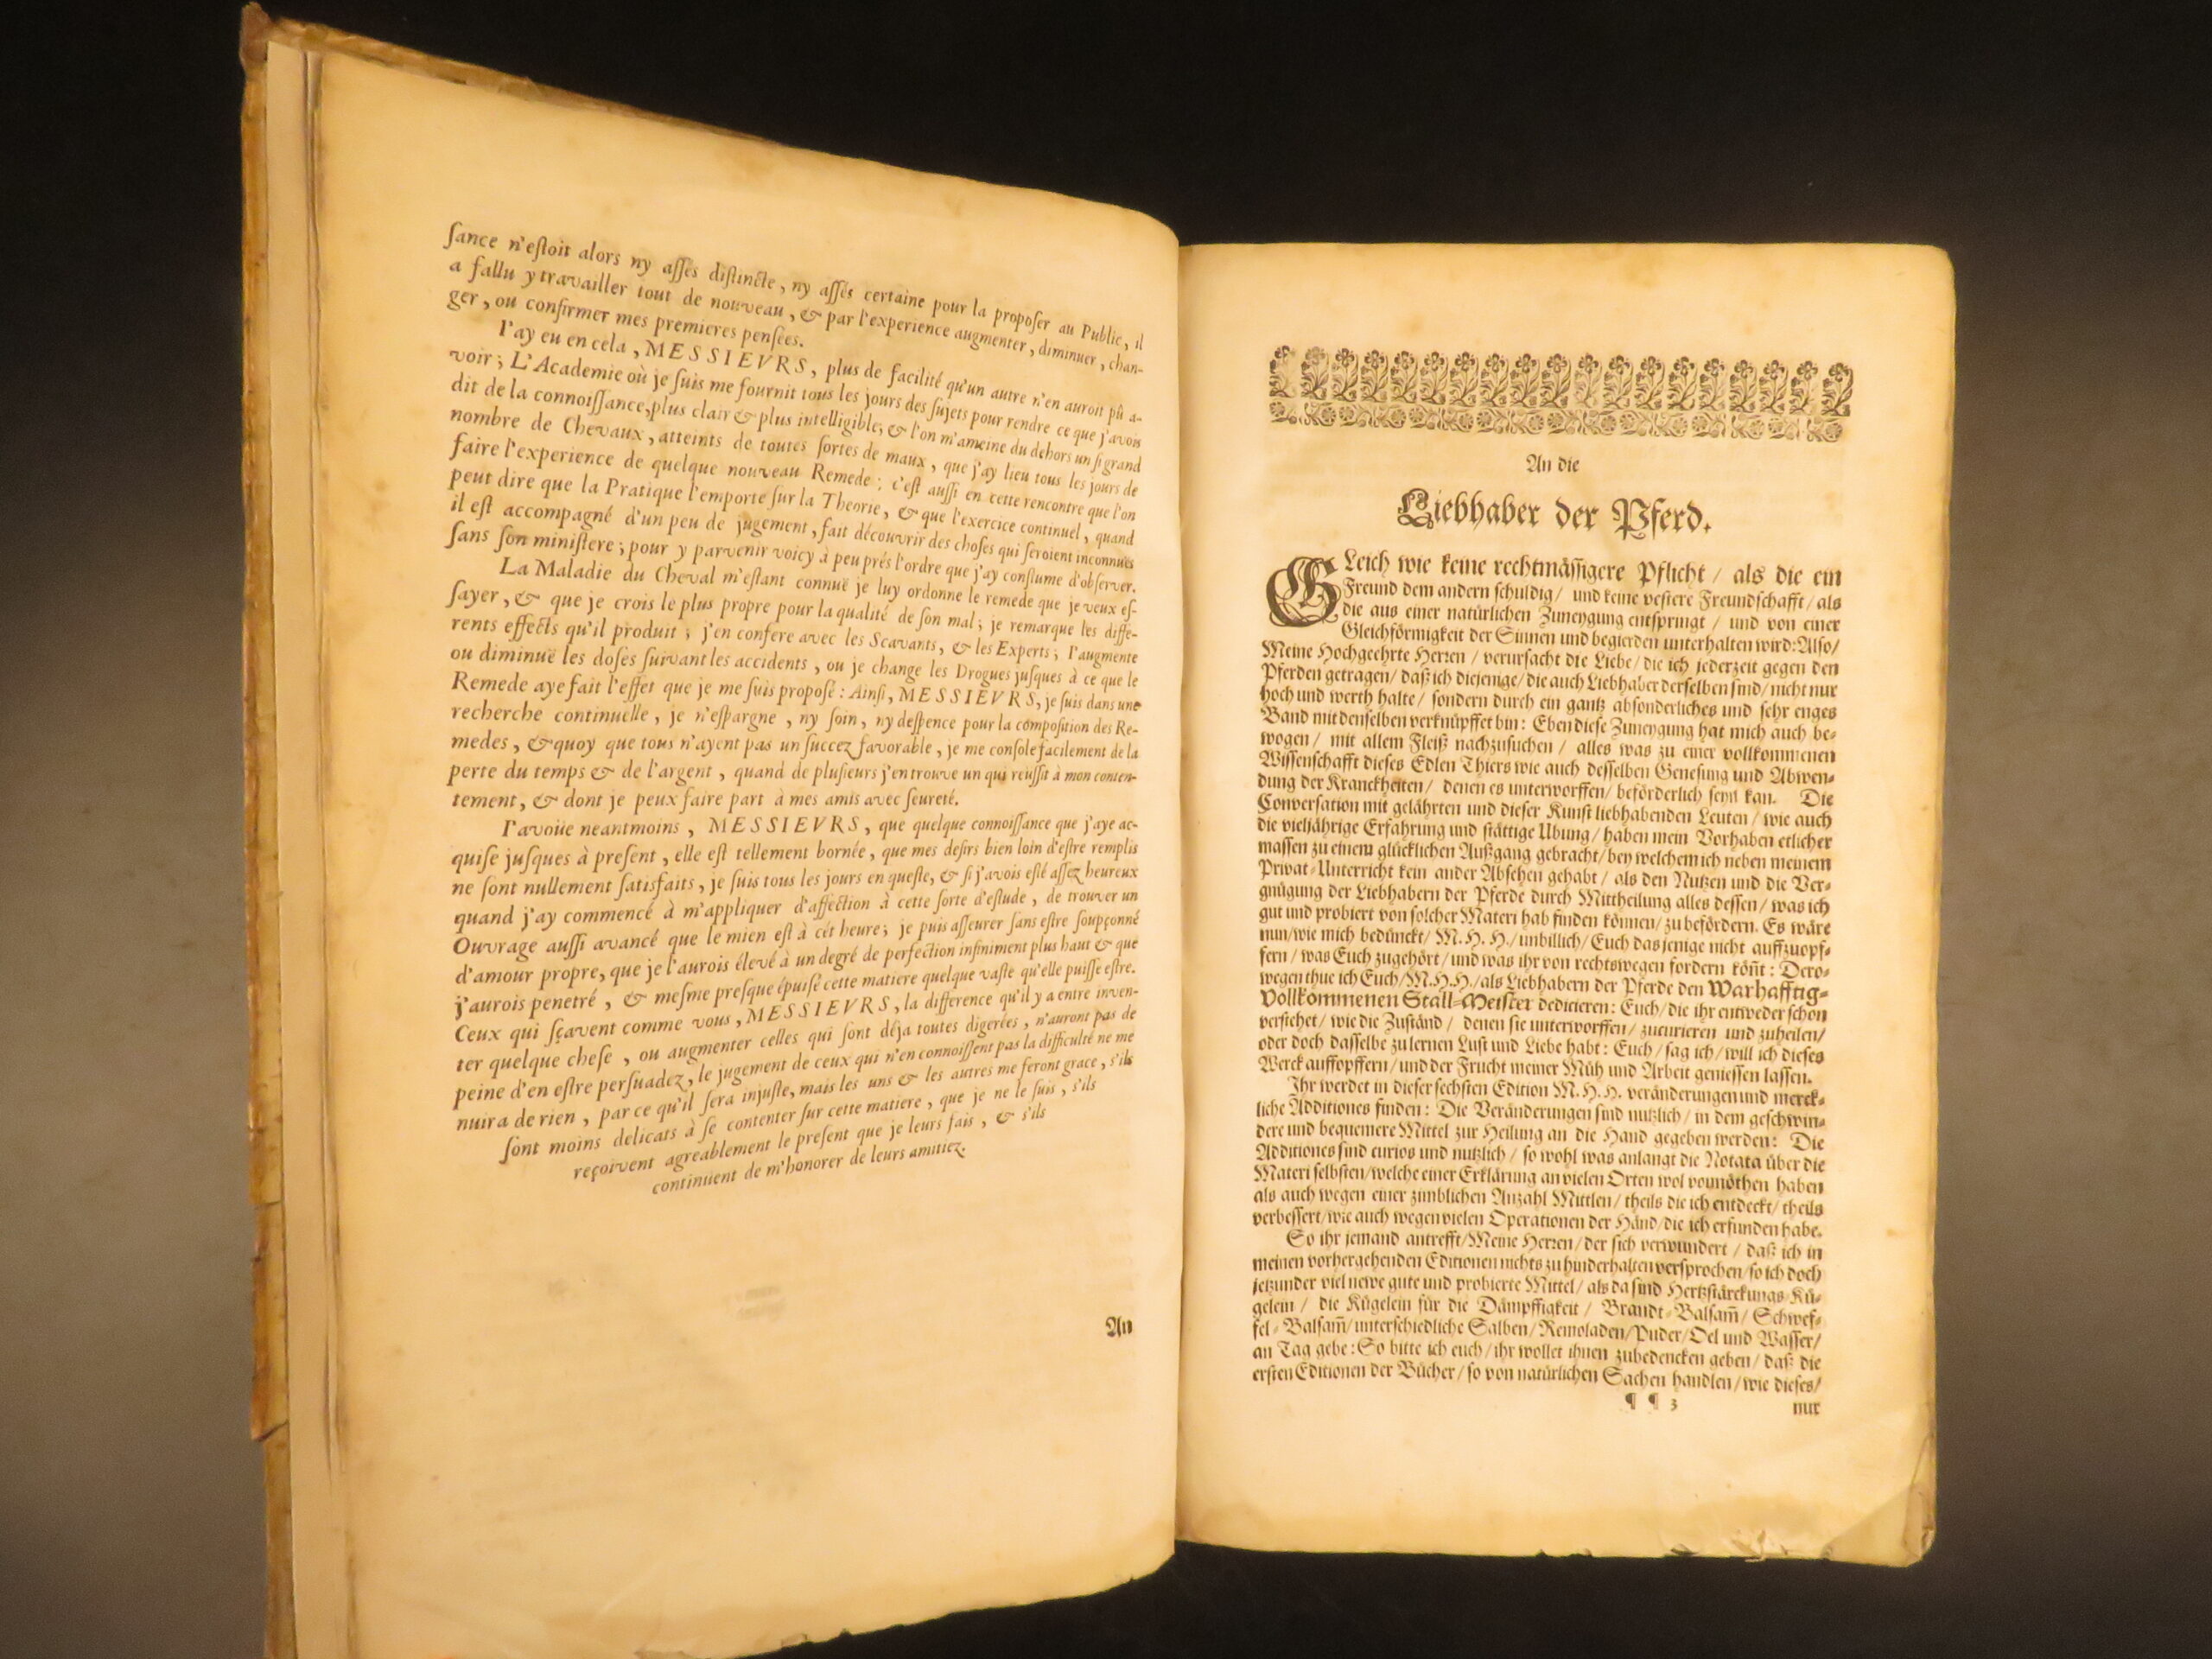 ſance n'eſtoit alors ny aſſés diſtincte, ny aſſés certaine pour la propoſer au Public, il
a fallu y travailler tout de nouveau, & par l'experience augmenter, diminuer, chan-
ger, ou confirmer mes premieres penſées.
I'ay eu en cela, MESSIEVRS, plus de facilité qu'un autre n'en auroit pû a-
voir; L'Academie où je ſuis me fournit tous les jours des ſujets pour rendre ce que j'avois
dit de la connoiſſance, plus clair & plus intelligible; & l'on m'ameine du dehors un ſi grand
nombre de Chevaux, atteints de toutes ſortes de maux, que j'ay lieu tous les jours de
faire l'experience de quelque nouveau Remede; c'eſt auſſi en cette rencontre que l'on
peut dire que la Pratique l'emporte ſur la Theorie, & que l'exercice continuel, quand
il eſt accompagné d'un peu de jugement, fait découvrir des choſes qui ſeroient inconnuës
ſans ſon miniſtere; pour y parvenir voicy à peu prés l'ordre que j'ay conſtume d'obſerver.
La Maladie du Cheval m'eſtant connuë je luy ordonne le remede que je veux eſ-
ſayer, & que je crois le plus propre pour la qualité de ſon mal; je remarque les diffe-
rents effects qu'il produit; j'en confere avec les Scavants, & les Experts; I'augmente
ou diminuë les doſes ſuivant les accidents, ou je change les Drogues juſques à ce que le
Remede aye fait l'effet que je me ſuis propoſé: Ainſi, MESSIEVRS, je ſuis dans une
recherche continuelle, je n'eſpargne, ny ſoin, ny deſpence pour la compoſition des Re-
medes, & quoy que tous n'ayent pas un ſuccez favorable, je me conſole facilement de la
perte du temps & de l'argent, quand de pluſieurs j'en trouve un qui reüſſit à mon conten-
tement, & dont je peux faire part à mes amis avec ſeureté.
I'avoüe neantmoins, MESSIEVRS, que quelque connoiſſance que j'aye ac-
quiſe juſques à preſent, elle eſt tellement bornée, que mes deſirs bien loin d'eſtre remplis
ne ſont nullement ſatisfaits, je ſuis tous les jours en queſte, & ſi j'avois eſté aſſez heureux
quand j'ay commencé à m'appliquer d'affection à cette ſorte d'eſtude, de trouver un
Ouvrage auſſi avancé que le mien eſt à cét heure; je puis aſſeurer ſans eſtre ſoupçonné
d'amour propre, que je l'aurois élevé à un degré de perfection infiniment plus haut & que
j'aurois penetré, & meſme preſque épuiſé cette matiere quelque vaſte qu'elle puiſſe eſtre.
Ceux qui ſçavent comme vous, MESSIEVRS, la difference qu'il y a entre inven-
ter quelque cheſe, ou augmenter celles qui ſont déja toutes digerées, n'auront pas de
peine d'en eſtre perſuadez, le jugement de ceux qui n'en connoiſſent pas la difficulté ne me
nuira de rien, par ce qu'il ſera injuſte, mais les uns & les autres me feront grace, s'ils
ſont moins delicats à ſe contenter ſur cette matiere, que je ne le ſuis, s'ils
reçoivent agreablement le preſent que je leurs fais, & s'ils
continuent de m'honorer de leurs amitiez.
An
An die
Liebhaber der Pferd.
GLeich wie keine rechtmäſſigere Pflicht / als die ein
Freund dem andern ſchuldig / und keine veſtere Freundſchafft / als
die aus einer natürlichen Zuneygung entſpringt / und von einer
Gleichförmigkeit der Sinnen und begierden unterhalten wird: Alſo/
Meine Hochgeehrte Herren / verurſacht die Liebe / die ich jederzeit gegen den
Pferden getragen / daß ich diejenige / die auch Liebhaber derſelben ſind / nicht nur
hoch und werth halte / ſondern durch ein gantz abſonderliches und ſehr enges
Band mit denſelben verknüpffet bin: Eben dieſe Zuneygung hat mich auch be-
wogen / mit allem Fleiß nachzuſuchen / alles was zu einer vollkommenen
Wiſſenſchafft dieſes Edlen Thiers wie auch deſſelben Geneſung und Abwen-
dung der Kranckheiten / denen es unterworffen / beförderlich ſeyn kan. Die
Converſation mit gelährten und dieſer Kunſt liebhabenden Leuten / wie auch
die vieljährige Erfahrung und ſtättige Ubung / haben mein Vorhaben etlicher
maſſen zu einem glücklichen Außgang gebracht / bey welchem ich neben meinem
Privat-Unterricht kein ander Abſehen gehabt / als den Nutzen und die Ver-
gnügung der Liebhabern der Pferde durch Mittheilung alles deſſen / was ich
gut und probiert von ſolcher Materi hab finden können / zu befördern. Es wäre
nun / wie mich bedünckt / M. H. H. / unbillich / Euch das jenige nicht auffzuopf-
fern / was Euch zugehört / und was ihr von rechtswegen fordern könt: Dero-
wegen thue ich Euch / M. H. H. / als Liebhabern der Pferde den Warhafftig-
Vollkommenen Stall-Meiſter dedicieren: Euch / die ihr entweder ſchon
verſtehet / wie die Zuſtänd / denen ſie unterworffen / zu curieren und zu heilen/
oder doch daſſelbe zu lernen Luſt und Liebe habt: Euch / ſag ich / will ich dieſes
Werck auffopffern / und der Frucht meiner Müh und Arbeit genieſſen laſſen.
Ihr werdet in dieſer ſechſten Edition M. H. H. veränderungen und merck-
liche Additiones finden: Die Veränderungen ſind nutzlich / in dem geſchwin-
dere und bequemere Mittel zur Heilung an die Hand gegeben werden: Die
Additiones ſind curios und nutzlich / ſo wohl was anlangt die Notata über die
Materi ſelbſten / welche einer Erklärung an vielen Orten wol vonnöthen haben
als auch wegen einer zimblichen Anzahl Mittlen / theils die ich entdeckt / theils
verbeſſert / wie auch wegen vielen Operationen der Händ / die ich erfunden habe.
So ihr jemand antrefft / Meine Herren / der ſich verwundert / daß ich in
meinen vorhergehenden Editionen nichts zu hinderhalten verſprochen / ſo ich doch
jetzunder viel newe gute und probierte Mittel / als da ſind Hertzſtärckungs-Kü-
gelein / die Kügelein für die Dämpffigkeit / Brandt-Balſam̄ / Schwef-
fel-Balſam̄ / unterſchiedliche Salben / Remoladen / Puder / Oel und Waſſer/
an Tag gebe: So bitte ich euch / ihr wollet ihnen zubedencken geben / daß die
erſten Editionen der Bücher / ſo von natürlichen Sachen handlen / wie dieſes/
¶ ¶ 3 nur